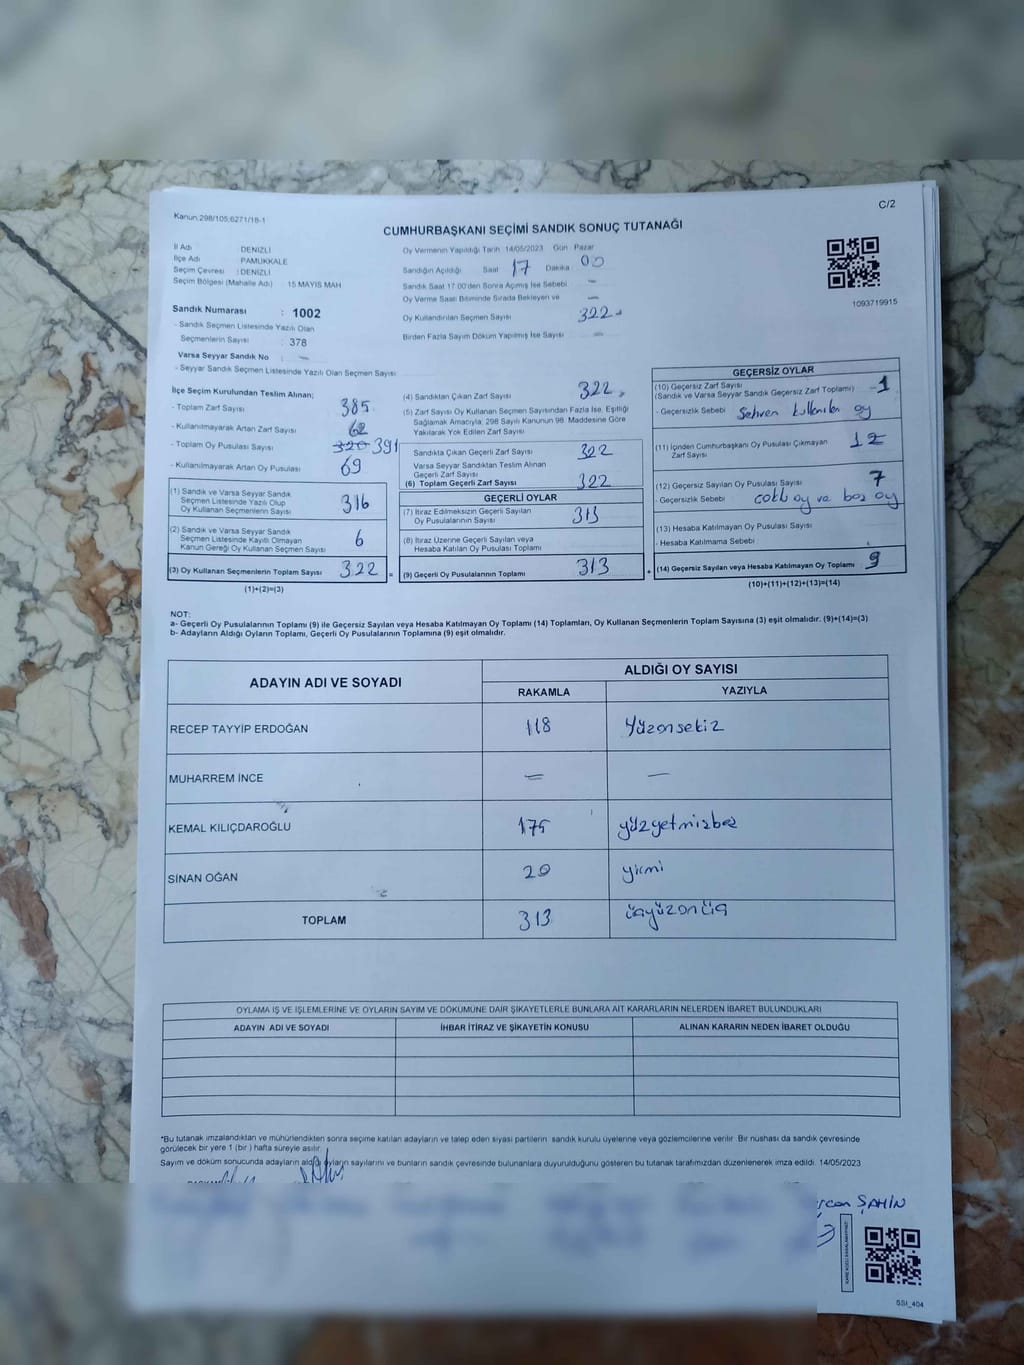 C/2
Kanun;298/105,6271/18-1
CUMHURBAŞKANI SEÇİMİ SANDIK SONUÇ TUTANAĞI
İl Adı DENİZLİ
İlçe Adı PAMUKKALE
Seçim Çevresi : DENİZLİ
Seçim Bölgesi (Mahalle Adı) : 15 MAYIS MAH
Oy Vermenin Yapıldığı Tarih 14/05/2023 Gün Pazar
Sandığın Açıldığı Saat 17 Dakika 00
Sandık Saat 17.00'den Sonra Açılmış İse Sebebi —
Oy Verme Saati Bitiminde Sırada Bekleyen ve —
Oy Kullandırılan Seçmen Sayısı 322
Birden Fazla Sayım Döküm Yapılmış İse Sayısı —
1093719915
Sandık Numarası : 1002
- Sandık Seçmen Listesinde Yazılı Olan
Seçmenlerin Sayısı : 378
Varsa Seyyar Sandık No : —
- Seyyar Sandık Seçmen Listesinde Yazılı Olan Seçmen Sayısı
İlçe Seçim Kurulundan Teslim Alınan;
- Toplam Zarf Sayısı 385
- Kullanılmayarak Artan Zarf Sayısı 62
- Toplam Oy Pusulası Sayısı 320 391
- Kullanılmayarak Artan Oy Pusulası 69
(1) Sandık ve Varsa Seyyar Sandık
Seçmen Listesinde Yazılı Olup
Oy Kullanan Seçmenlerin Sayısı 316
(2) Sandık ve Varsa Seyyar Sandık
Seçmen Listesinde Kayıtlı Olmayan
Kanun Gereği Oy Kullanan Seçmen Sayısı 6
(3) Oy Kullanan Seçmenlerin Toplam Sayısı 322 =
(1)+(2)=(3)
(4) Sandıktan Çıkan Zarf Sayısı 322
(5) Zarf Sayısı Oy Kullanan Seçmen Sayısından Fazla İse, Eşitliği
Sağlamak Amacıyla; 298 Sayılı Kanunun 98. Maddesine Göre
Yakılarak Yok Edilen Zarf Sayısı
Sandıkta Çıkan Geçerli Zarf Sayısı 322
Varsa Seyyar Sandıktan Teslim Alınan
Geçerli Zarf Sayısı
(6) Toplam Geçerli Zarf Sayısı 322
GEÇERLİ OYLAR
(7) İtiraz Edilmeksizin Geçerli Sayılan
Oy Pusulalarının Sayısı 313
(8) İtiraz Üzerine Geçerli Sayılan veya
Hesaba Katılan Oy Pusulası Toplamı
(9) Geçerli Oy Pusulalarının Toplamı 313 +
GEÇERSİZ OYLAR
(10) Geçersiz Zarf Sayısı
(Sandık ve Varsa Seyyar Sandık Geçersiz Zarf Toplamı) 1
- Geçersizlik Sebebi Sehven kullanılan oy
(11) İçinden Cumhurbaşkanı Oy Pusulası Çıkmayan
Zarf Sayısı
(12) Geçersiz Sayılan Oy Pusulası Sayısı 7
- Geçersizlik Sebebi çoklu oy ve boş oy
(13) Hesaba Katılmayan Oy Pusulası Sayısı
- Hesaba Katılmama Sebebi
(14) Geçersiz Sayılan veya Hesaba Katılmayan Oy Toplamı 9
(10)+(11)+(12)+(13)=(14)
NOT:
a- Geçerli Oy Pusulalarının Toplamı (9) ile Geçersiz Sayılan veya Hesaba Katılmayan Oy Toplamı (14) Toplamları, Oy Kullanan Seçmenlerin Toplam Sayısına (3) eşit olmalıdır. (9)+(14)=(3)
b- Adayların Aldığı Oyların Toplamı, Geçerli Oy Pusulalarının Toplamına (9) eşit olmalıdır.
ADAYIN ADI VE SOYADI ALDIĞI OY SAYISI
RAKAMLA YAZIYLA
RECEP TAYYİP ERDOĞAN 118 Yüzonsekiz
MUHARREM İNCE — —
KEMAL KILIÇDAROĞLU 175 yüzyetmişbeş
SİNAN OĞAN 20 yirmi
TOPLAM 313 üçyüzonüç
OYLAMA İŞ VE İŞLEMLERİNE VE OYLARIN SAYIM VE DÖKÜMÜNE DAİR ŞİKAYETLERLE BUNLARA AİT KARARLARIN NELERDEN İBARET BULUNDUKLARI
ADAYIN ADI VE SOYADI İHBAR İTİRAZ VE ŞİKAYETİN KONUSU ALINAN KARARIN NEDEN İBARET OLDUĞU
*Bu tutanak imzalandıktan ve mühürlendikten sonra seçime katılan adayların ve talep eden siyasi partilerin sandık kurulu üyelerine veya gözlemcilerine verilir. Bir nüshası da sandık çevresinde
görülecek bir yere 1 (bir) hafta süreyle asılır.
Sayım ve döküm sonucunda adayların aldığı oyların sayılarını ve bunların sandık çevresinde bulunanlara duyurulduğunu gösteren bu tutanak tarafımızdan düzenlenerek imza edildi. 14/05/2023
ŞAHİN
SSI_404